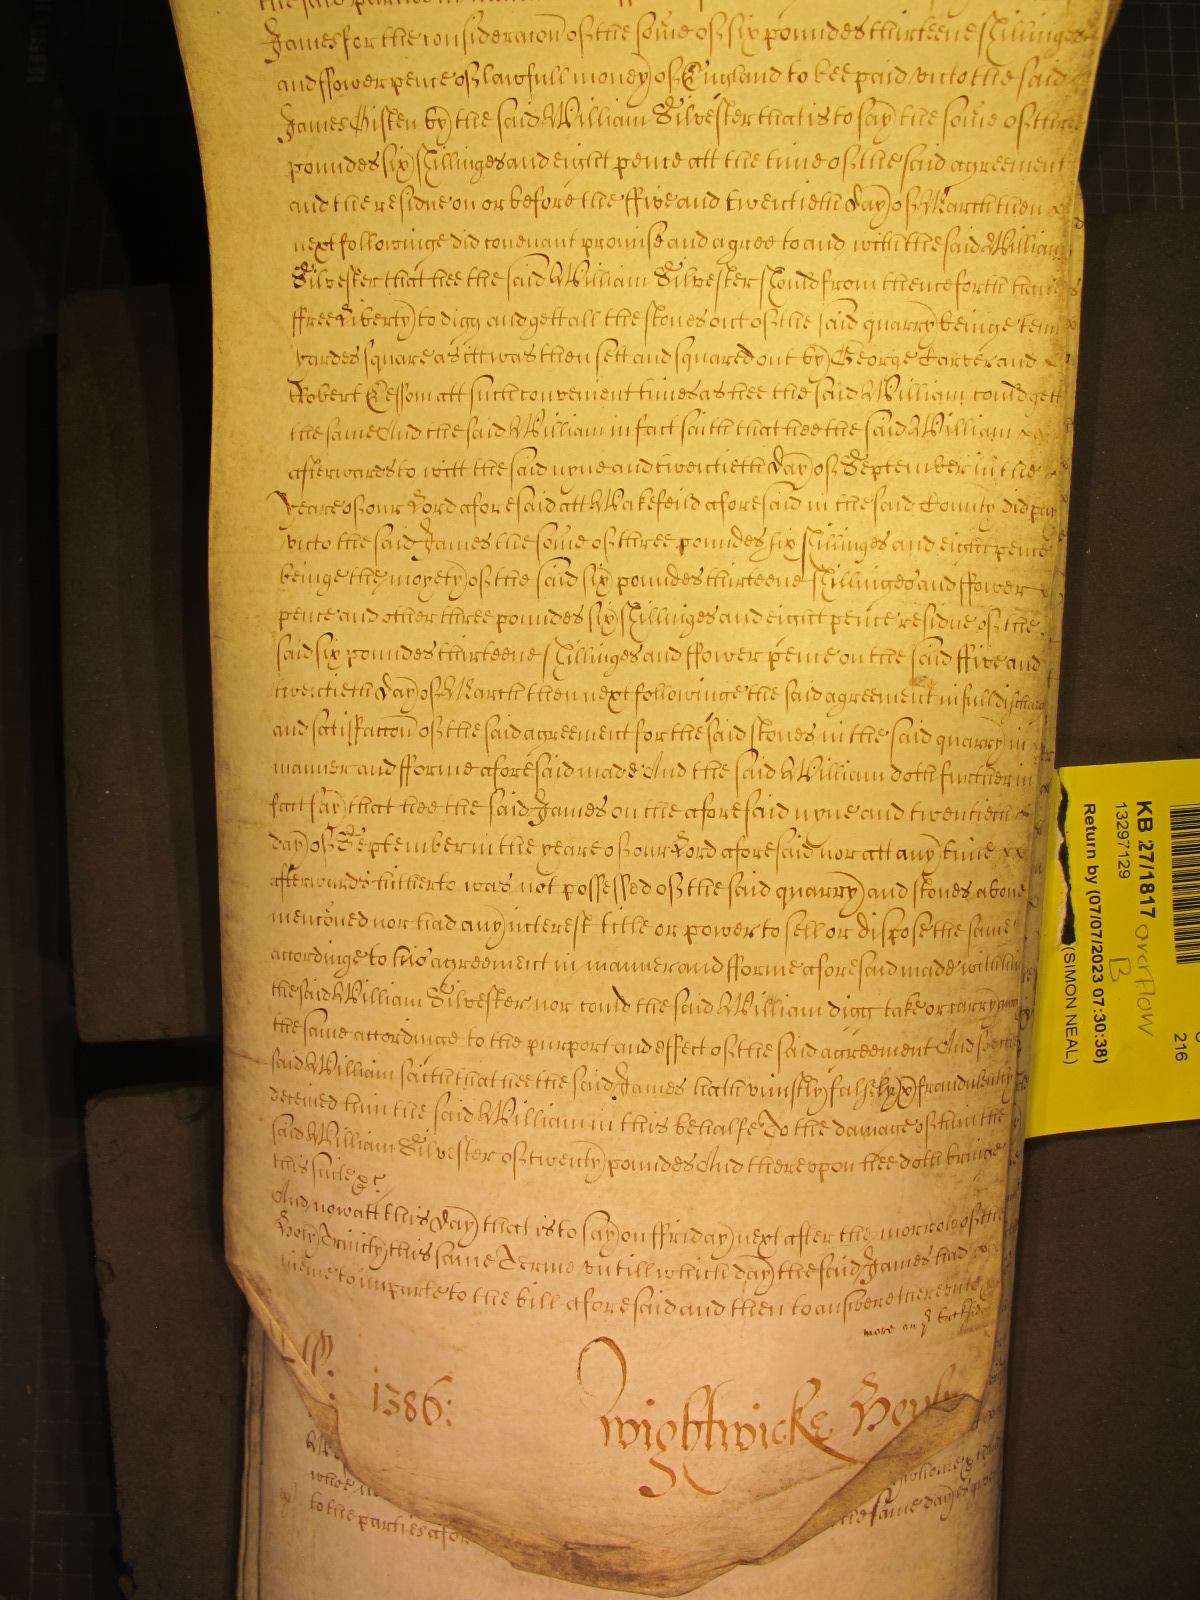 James for the consideracon of the some of six poundes thirteene shillinges
and ffower pence of lawfull money of England to bee paid vnto the said
James Gisten by the said William Silvester that is to say the some of three
poundes six shillinges and eight pence att the time of the said agreement
and the residue on or before the ffive and twentieth day of March then
next followinge did covenant promise and agree to and with the said William
Silvester that hee the said William Silvester should from thenceforth have
ffree Liberty to digg and gett all the stones out of the said quarry beinge tenn
yardes square as itt was then sett and squared out by George Carver and
Robert Cessom att such convenient times as hee the said William could gett
the same And the said William in fact saith that hee the said William
afterwards to witt the said nyne and twentieth day of September in the
yeare of our Lord aforesaid att Wakefeild aforesaid in the said County did pay
vnto the said James the some of three poundes six shillinges and eight pence
beinge the moyety of the said six poundes thirteene shillinges and ffower
pence and other three poundes six shillinges and eight pence residue of the
said six poundes thirteene shillinges and ffower pence on the said ffive and
twentieth day of March then next followinge the said agreement in full discharge
and satisfaccon of the said agreement for the said stones in the said quarry in
manner and fforme aforesaid made And the said William doth further in
fact say that hee the said James on the aforesaid nyne and twentieth
day of September in the yeare of our Lord aforesaid nor att any time
afterwards hitherto was not possessed of the said quarry and stones above
menconed nor had any interest title or power to sell or dispose the same
accordinge to his agreement in manner and fforme aforesaid made with him
the said William Silvester nor could the said William digg take or carry away
the same accordinge to the purport and effect of the said agreement And soe the
said William saith that hee the said James hath vniustly falsely & fraudulently
deceived him the said William in this behalfe To the damage of him the
said William Silvester of twenty poundes And therevpon hee doth bringe
this suite &c
And now att this day that is to say on ffriday next after the morrow of the
Holy Trinity this same Terme vntill which day the said James had
licence to imparle to the bill aforesaid and then to answere therevnto &c
more on ye backside
1386:
Wightwicke
to the parties afor
the same day is given
KB 27/1817 overflow
B
13297129
Return by (07/07/2023 07:30:38)
(SIMON NEAL)
216